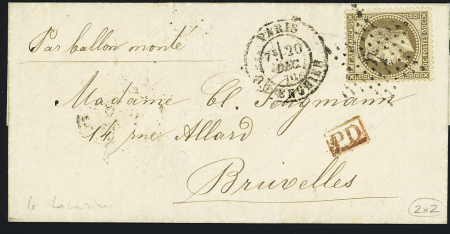 Par ballon monté
PARIS
7E 20
DEC.
70
R. D'ENGHIEN
Madame Cl.
14 rue Allard
P.D.
Bruxelles
2x2